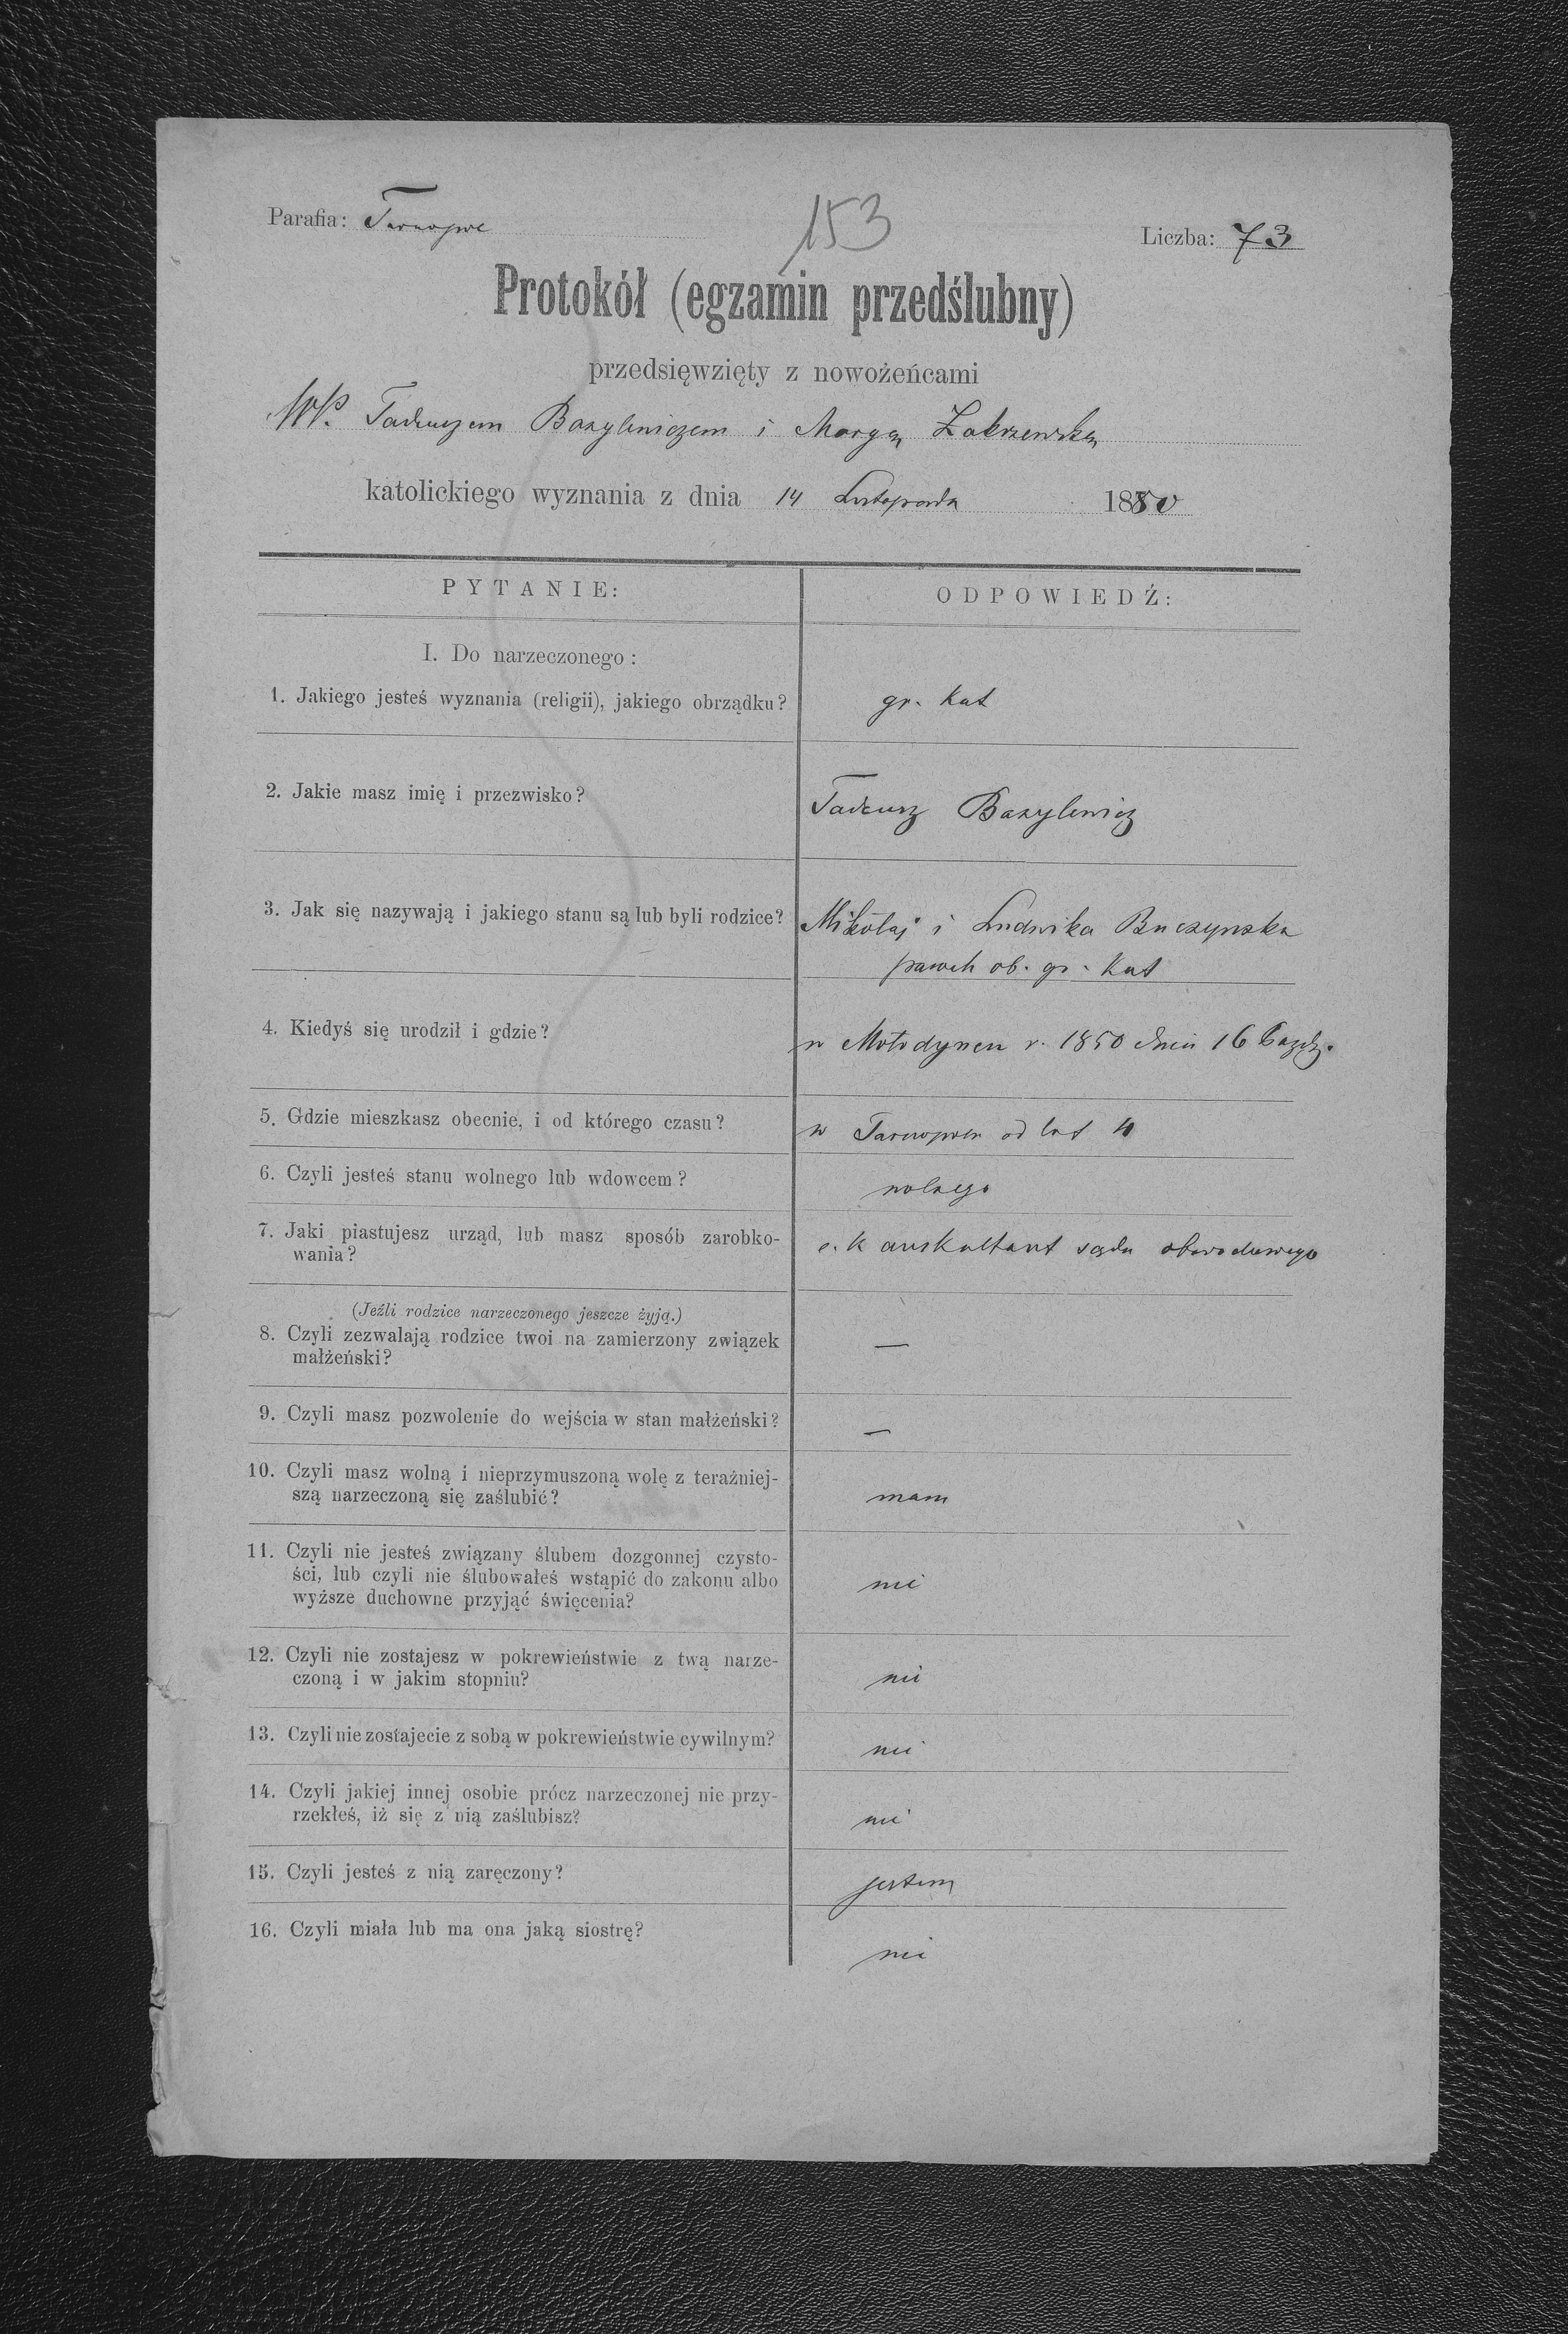 Parafia: Tarnopol
153
Liczba: 73
Protokół (egzamin przedślubny)
przedsięwzięty z nowożeńcami
WP. Tadeuszem Bazylewiczem i Maryą Zakrzewską
katolickiego wyznania z dnia 14 Listopada 1880
PYTANIE:
ODPOWIEDŹ:
I. Do narzeczonego:
1. Jakiego jesteś wyznania (religii), jakiego obrządku?
gr. kat
2. Jakie masz imię i przezwisko?
Tadeusz Bazylewicz
3. Jak się nazywają i jakiego stanu są lub byli rodzice?
Mikołaj i Ludwika Buczyńska
ob. gr. kat
4. Kiedyś się urodził i gdzie?
w r. 1850 dnia 16 Pazdz.
5. Gdzie mieszkasz obecnie, i od którego czasu?
w od lat 4
6. Czyli jesteś stanu wolnego lub wdowcem?
wolnego
7. Jaki piastujesz urząd, lub masz sposób zarobko-
wania?
c. k auskultant sądu obwodowego
(Jeźli rodzice narzeczonego jeszcze żyją.)
8. Czyli zezwalają rodzice twoi na zamierzony związek
małżeński?
—
9. Czyli masz pozwolenie do wejścia w stan małżeński?
—
10. Czyli masz wolną i nieprzymuszoną wolę z teraźniej-
szą narzeczoną się zaślubić?
mam
11. Czyli nie jesteś związany ślubem dozgonnej czysto-
ści, lub czyli nie ślubowałeś wstąpić do zakonu albo
wyższe duchowne przyjąć święcenia?
nie
12. Czyli nie zostajesz w pokrewieństwie z twą narze-
czoną i w jakim stopniu?
nie
13. Czyli nie zostajecie z sobą w pokrewieństwie cywilnym?
nie
14. Czyli jakiej innej osobie prócz narzeczonej nie przy-
rzekłeś, iż się z nią zaślubisz?
nie
15. Czyli jesteś z nią zaręczony?
jestem
16. Czyli miała lub ma ona jaką siostrę?
nie